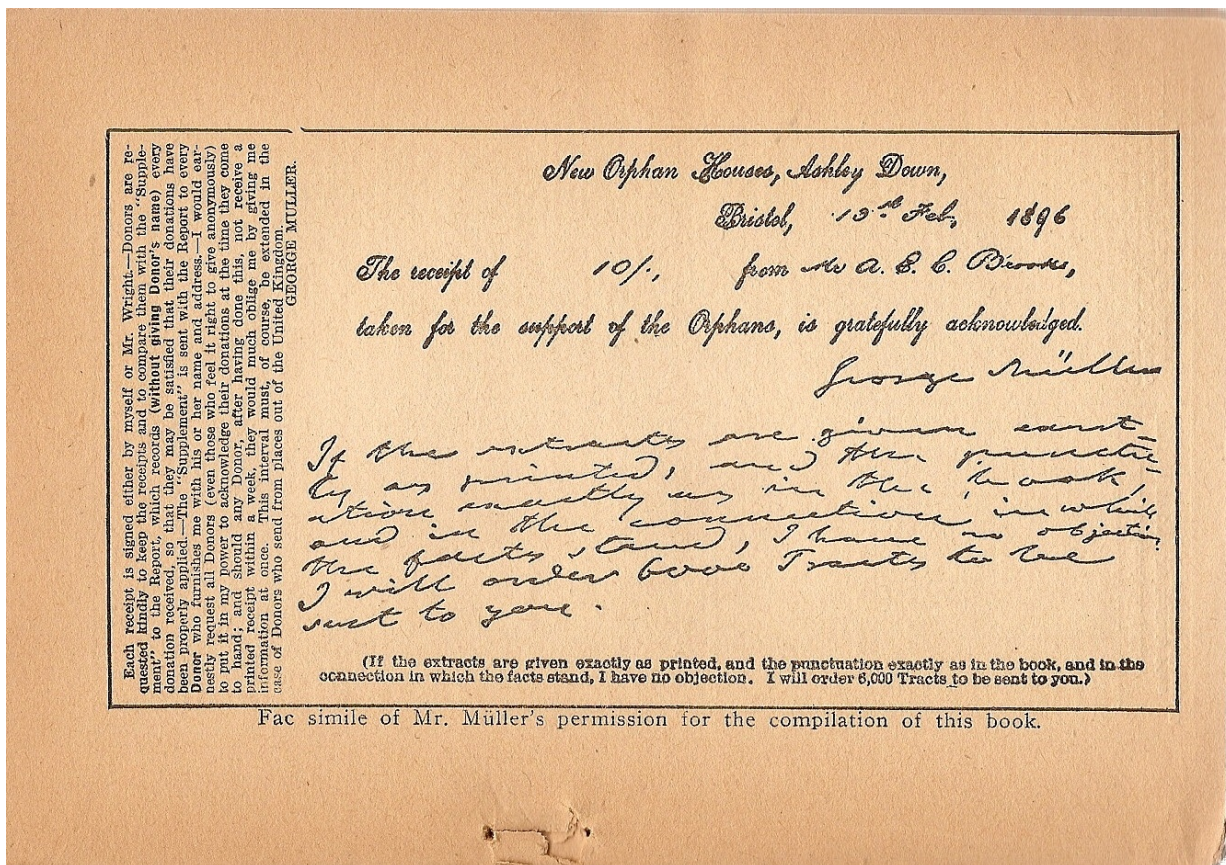 Each receipt is signed either by myself or Mr. Wright.—Donors are re-
quested kindly to keep the receipts and to compare them with the "Supple-
ment" to the Report, which records (without giving Donor's name) every
donation received, so that they may be satisfied that their donations have
been properly applied.—The "Supplement" is sent with the Report to every
Donor who furnishes me with his or her name and address.—I would ear-
nestly request all Donors (even those who feel it right to give anonymously)
to put it in my power to acknowledge their donations at the time they come
to hand; and should any Donor, after having done this, not receive a
printed receipt within a week, they would much oblige me by giving me
information at once. This interval must, of course, be extended in the
case of Donors who send from places out of the United Kingdom.
GEORGE MULLER.
New Orphan Houses, Ashley Down,
Bristol, Feb, 1896
The receipt of 10/., from Mr A. E. C. Brooks,
taken for the support of the Orphans, is gratefully acknowledged.
George Müller
If the extracts are given exact-
ly as printed, and the punctu-
ation exactly as in the book,
and in the connection, in which
the facts stand, I have no objection.
I will order 6000 Tracts to be
sent to you.
(If the extracts are given exactly as printed, and the punctuation exactly as in the book, and in the
connection in which the facts stand, I have no objection. I will order 6,000 Tracts to be sent to you.)
Fac simile of Mr. Müller's permission for the compilation of this book.